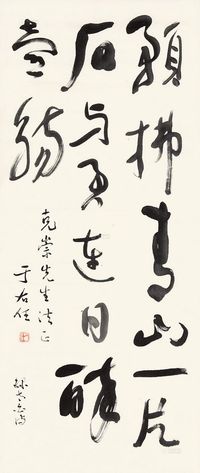 願拂青山一片
石与君連日醉
壺觴
克崇先生法正
于右任